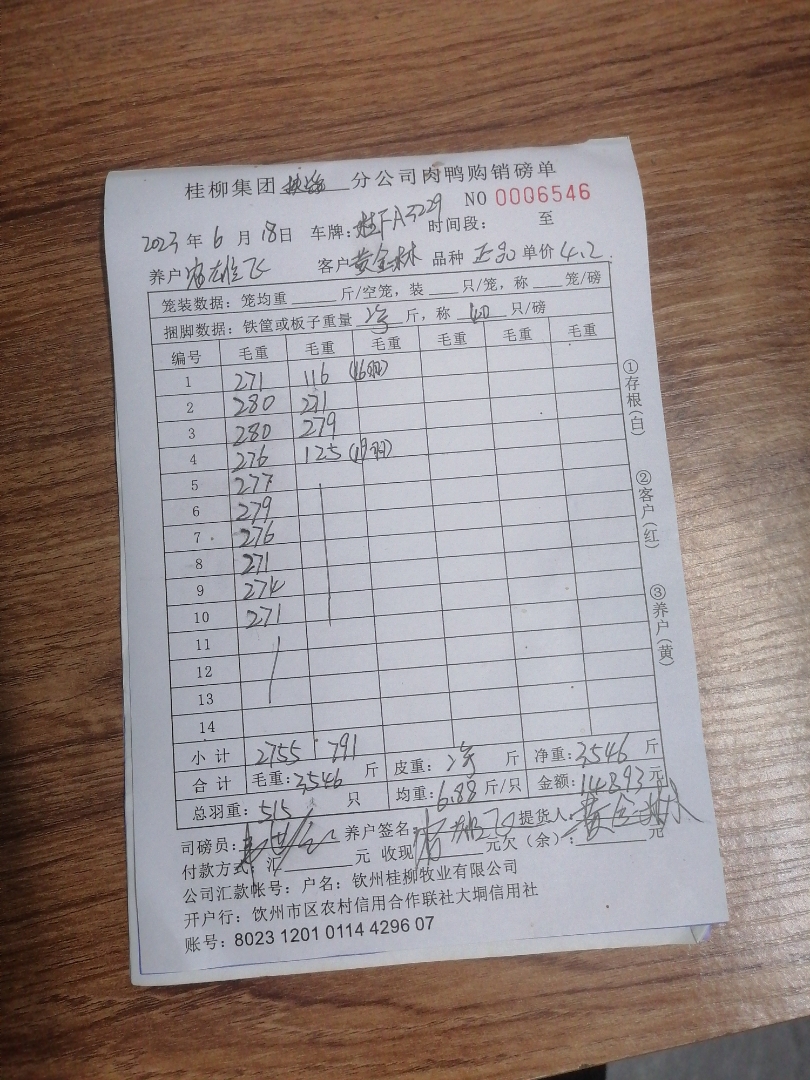 桂柳集团 分公司肉鸭购销磅单
NO 0006546
2023 年 6 月 18 日 车牌: 桂FA3229 时间段: 至
养户 雄飞 客户 黄金林 品种 正品 单价 4.2
笼装数据: 笼均重 斤/空笼, 装 只/笼, 称 笼/磅
捆脚数据: 铁筐或板子重量 斤, 称 40 只/磅
编号 毛重 毛重 毛重 毛重 毛重 毛重
1 271 116 (16羽)
2 280 271
3 280 279
4 276 125 (19羽)
5 277
6 279
7 276
8 271
9 274
10 271
11
12
13
14
小计 2755 791
合计 毛重: 3546 斤 皮重: 斤 净重: 3546 斤
总羽重: 515 只 均重: 6.88 斤/只 金额: 14893 元
司磅员: 养户签名: 提货人: 黄金林
付款方式: 汇 元 收现 元欠(余): 元
公司汇款帐号: 户名: 钦州桂柳牧业有限公司
开户行: 钦州市区农村信用合作联社大垌信用社
账号: 8023 1201 0114 4296 07
①存根(白)
②客户(红)
③养户(黄)